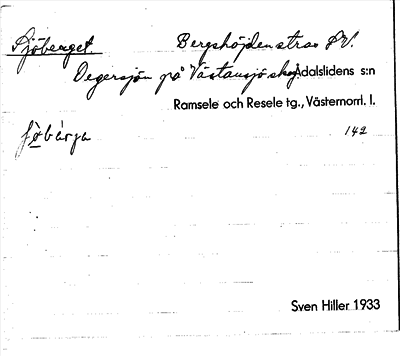 Sjöberget. Bergshöjden strax SV.
Degersjön på Västansjö skog Ådalslidens s:n
Ramsele och Resele tg., Västernorrl. l.
142
Sven Hiller 1933